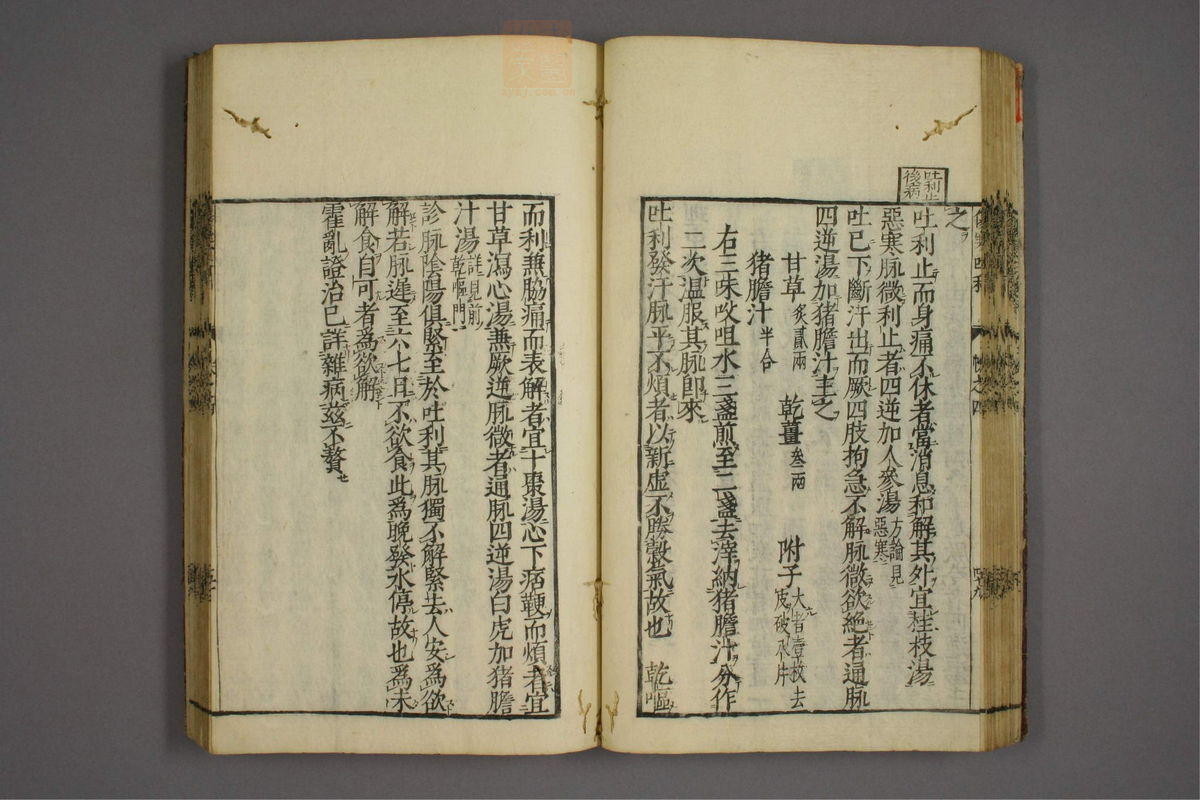 吐利止
後病
之
吐利止而身痛不休者當消息和解其外宜桂枝湯
惡寒脉微利止者四逆加人參湯方論見惡寒
吐已下斷汗出而厥四肢拘急不解脉微欲絶者通脉
四逆湯加猪膽汁主之
甘草炙貳兩 乾薑叁兩 附子大者壹枚去皮破八片
猪膽汁半合
右三味㕮咀水三盞煎至二盞去滓納猪膽汁分作
二次温服其脉即來
吐利發汗脉平不煩者以新虚不勝穀氣故也 乾嘔
而利兼脇痛而表解者宜十棗湯心下痞鞕而煩者宜
甘草瀉心湯兼厥逆脉微者通脉四逆湯白虎加猪膽
汁湯詳見前乾嘔門
診脉陰陽俱緊至於吐利其脉獨不解緊去人安爲欲
解若脉遲至六七日不欲食此爲晚發水停故也爲未
解食自可者爲欲解
霍亂證治已詳雜病兹不贅